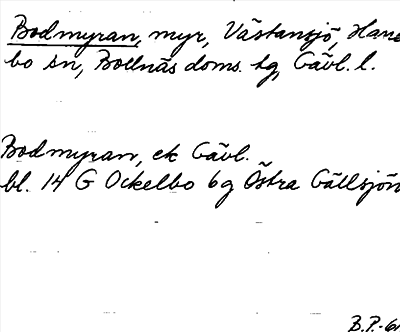 Bodmyran, myr, Västansjö, Hane
bo sn, Bollnäs doms. hg, Gävl. l.
Bodmyran, ek Gävl.
bl. 14 G Ockelbo 6g Östra Gällsjön
B.P.-6